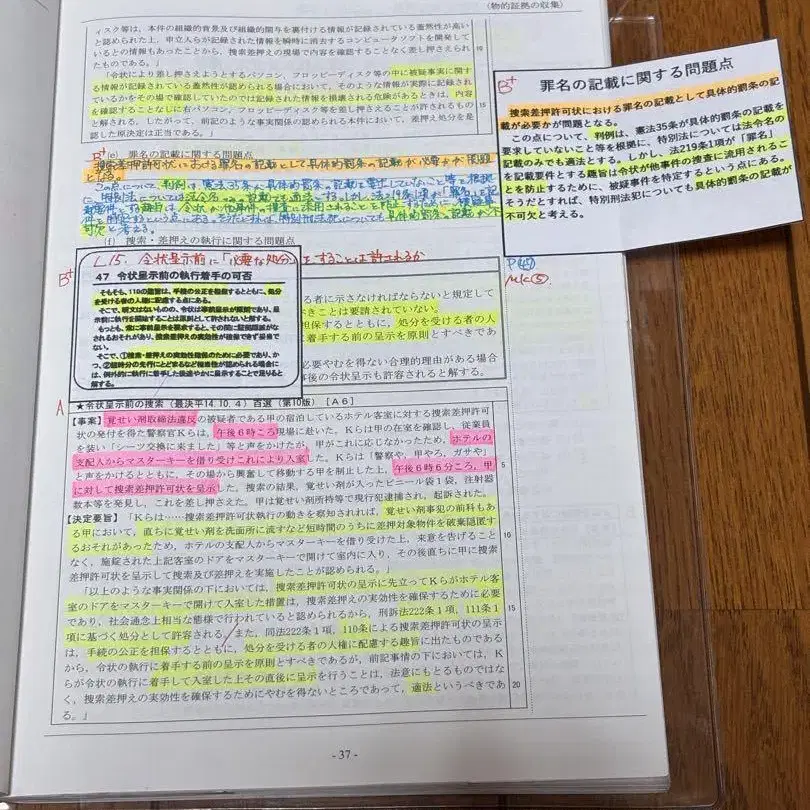 (物的証拠の収集)
ィスク等は、本件の組織的背景及び組織的関与を裏付ける情報が記録されている蓋然性が高い
と認められた上、申立人らが記録された情報を瞬時に消去するコンピュータソフトを開発して
いるとの情報もあったことから、捜索差押えの現場で内容を確認することなく差し押さえられ
たものである。」
10
「令状により差し押さえようとするパソコン、フロッピーディスク等の中に被疑事実に関す
る情報が記録されている蓋然性が認められる場合において、そのような情報が実際に記録され
ているかをその場で確認していたのでは記録された情報を損壊される危険があるときは、内容
を確認することなしに右パソコン、フロッピーディスク等を差し押さえることが許されるもの
と解される。したがって、前記のような事実関係の認められる本件において、差押え処分を是
認した原決定は正当である。」
15
B+
(e) 罪名の記載に関する問題点
捜索差押許可状における罪名の記載として具体的罰条の記載が必要かが問題
となる。
この点について、判例は、憲法35条が具体的罰条の記載を要求していないこと等を根拠
に、特別法については法令名の
不可欠と考える。
(f) 捜索・差押えの執行に関する問題点
B+
L15. 令状呈示前に「必要な処分」をすることは許されるか
47 令状呈示前の執行着手の可否
そもそも、110の趣旨は、手続の公正を担保するとともに、処分
を受ける者の人権に配慮する点にある。
そこで、明文はないものの、令状は事前呈示が原則であり、呈
示前に執行を開始することは原則として許されないと解する。
もっとも、常に事前呈示を要求すると、その間に証拠隠滅がな
されるおそれがあり、捜索差押えの実効性が確保できず妥当で
ない。
そこで、①捜索・差押えの実効性確保のために必要であり、か
つ、②短時分の先行にとどまるなど相当性が認められる場合に
は、例外的に執行に着手した後速やかに呈示することで足りると
解する。
る者に示さなければならないと規定して
きことは要請されていない。
担保するとともに、処分を受ける者の人
着手する前の呈示を原則とすべきであ
必要やむを得ない合理的理由がある場合
事後の令状呈示も許容されると解する。
A
★令状呈示前の捜索(最決平14.10.4)百選(第10版)[A6]
【事案】覚せい剤取締法違反の被疑者である甲の宿泊しているホテル客室に対する捜索差押許可
状の発付を得た警察官Kらは、午後6時ころ現場に赴いた。Kらは甲の在室を確認し、従業員
を装い「シーツ交換に来ました」等と声をかけたが、甲がこれに応じなかったため、ホテルの
支配人からマスターキーを借り受けこれにより入室した。Kらは「警察や、甲やろ、ガサや」
と声をかけるとともに、その場から興奮して移動する甲を制止した上、午後6時6分ころ、甲
に対して捜索差押許可状を呈示した。捜索の結果、覚せい剤が入ったビニール袋1袋、注射器
数本等を発見し、これを差し押さえた。甲は覚せい剤所持等で現行犯逮捕され、起訴された。
5
【決定要旨】「Kらは……捜索差押許可状執行の動きを察知されれば、覚せい剤事犯の前科もあ
る甲において、直ちに覚せい剤を洗面所に流すなど短時間のうちに差押対象物件を破棄隠匿す
るおそれがあったため、ホテルの支配人からマスターキーを借り受けた上、来意を告げること
なく、施錠された上記客室のドアをマスターキーで開けて室内に入り、その後直ちに甲に捜索
差押許可状を呈示して捜索及び差押えを実施したことが認められる。」
10
「以上のような事実関係の下においては、捜索差押許可状の呈示に先立ってKらがホテル客
室のドアをマスターキーで開けて入室した措置は、捜索差押えの実効性を確保するために必要
であり、社会通念上相当な態様で行われていると認められるから、刑訴法222条1項、111条1
項に基づく処分として許容される。また、同法222条1項、110条による捜索差押許可状の呈示
は、手続の公正を担保するとともに、処分を受ける者の人権に配慮する趣旨に出たものである
から、令状の執行に着手する前の呈示を原則とすべきであるが、前記事情の下においては、K
らが令状の執行に着手して入室した上その直後に呈示を行うことは、法意にもとるものではな
く、捜索差押えの実効性を確保するためにやむを得ないところであって、適法というべきであ
る。」
15
20
- 37 -
B+
罪名の記載に関する問題点
捜索差押許可状における罪名の記載として具体的罰条の記
載が必要かが問題となる。
この点について、判例は、憲法35条が具体的罰条の記載を
要求していないこと等を根拠に、特別法については法令名の
記載のみでも適法とする。しかし、法219条1項が「罪名」
を記載要件とする趣旨は令状が他事件の捜査に流用されるこ
とを防止するために、被疑事件を特定するという点にある。
そうだとすれば、特別刑法犯についても具体的罰条の記載が
不可欠と考える。